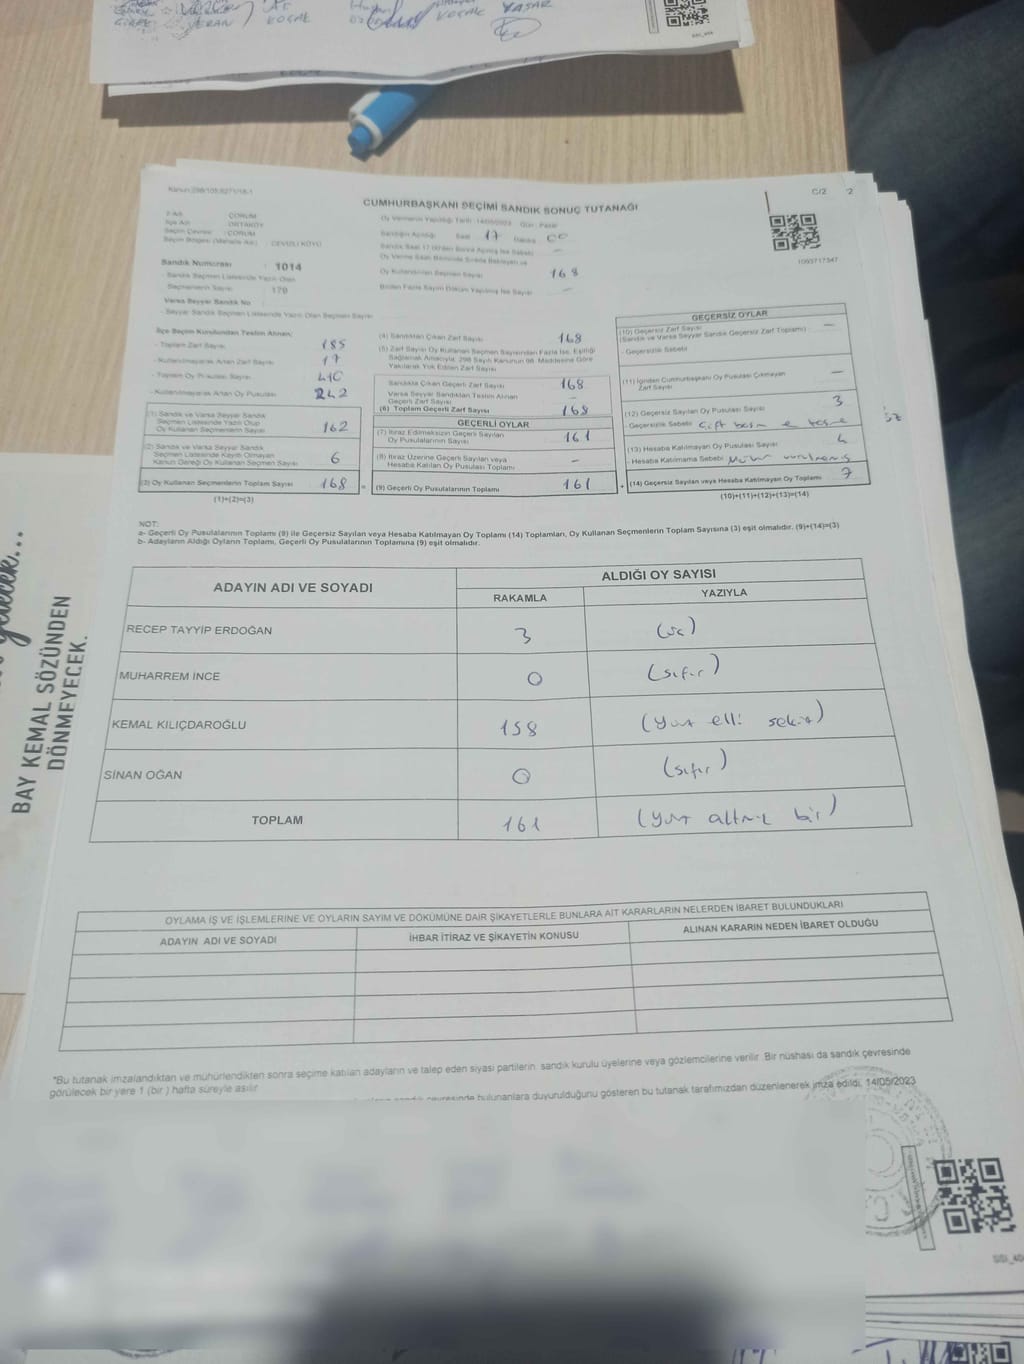 KOÇAK
KOÇAK
YAŞAR
Kanun:298/105;6271/18-1
C/2
CUMHURBAŞKANI SEÇİMİ SANDIK SONUÇ TUTANAĞI
İl Adı : ÇORUM
İlçe Adı : ORTAKÖY
Seçim Çevresi : ÇORUM
Seçim Bölgesi (Mahalle Adı) : CEVİZLİ KÖYÜ
Oy Vermenin Yapıldığı Tarih : 14/05/2023 Gün : Pazar
Sandığın Açıldığı Saat 17 Dakika 00
Sandık Saat 17:00'den Sonra Açılmış İse Sebebi —
Oy Verme Saati Bitiminde Sırada Bekleyen ve
Oy Kullandırılan Seçmen Sayısı 168
Birden Fazla Sayım Döküm Yapılmış İse Sayısı —
Sandık Numarası : 1014
- Sandık Seçmen Listesinde Yazılı Olan
Seçmenlerin Sayısı : 170
Varsa Seyyar Sandık No
- Seyyar Sandık Seçmen Listesinde Yazılı Olan Seçmen Sayısı
İlçe Seçim Kurulundan Teslim Alınan;
- Toplam Zarf Sayısı 185
- Kullanılmayarak Artan Zarf Sayısı 17
- Toplam Oy Pusulası Sayısı 410
- Kullanılmayarak Artan Oy Pusulası 242
(1) Sandık ve Varsa Seyyar Sandık
Seçmen Listesinde Yazılı Olup
Oy Kullanan Seçmenlerin Sayısı 162
(2) Sandık ve Varsa Seyyar Sandık
Seçmen Listesinde Kayıtlı Olmayan
Kanun Gereği Oy Kullanan Seçmen Sayısı 6
(3) Oy Kullanan Seçmenlerin Toplam Sayısı 168 =
(1)+(2)=(3)
(4) Sandıktan Çıkan Zarf Sayısı 168
(5) Zarf Sayısı Oy Kullanan Seçmen Sayısından Fazla İse, Eşitliği
Sağlamak Amacıyla, 298 Sayılı Kanunun 98. Maddesine Göre
Yakılarak Yok Edilen Zarf Sayısı
Sandıkta Çıkan Geçerli Zarf Sayısı 168
Varsa Seyyar Sandıktan Teslim Alınan
Geçerli Zarf Sayısı —
(6) Toplam Geçerli Zarf Sayısı 168
GEÇERLİ OYLAR
(7) İtiraz Edilmeksizin Geçerli Sayılan
Oy Pusulalarının Sayısı 161
(8) İtiraz Üzerine Geçerli Sayılan veya
Hesaba Katılan Oy Pusulası Toplamı —
(9) Geçerli Oy Pusulalarının Toplamı 161 +
GEÇERSİZ OYLAR
(10) Geçersiz Zarf Sayısı
(Sandık ve Varsa Seyyar Sandık Geçersiz Zarf Toplamı) —
- Geçersizlik Sebebi
(11) İçinden Cumhurbaşkanı Oy Pusulası Çıkmayan
Zarf Sayısı —
(12) Geçersiz Sayılan Oy Pusulası Sayısı 3
- Geçersizlik Sebebi
(13) Hesaba Katılmayan Oy Pusulası Sayısı 4
- Hesaba Katılmama Sebebi
(14) Geçersiz Sayılan veya Hesaba Katılmayan Oy Toplamı 7
(10)+(11)+(12)+(13)=(14)
NOT:
a- Geçerli Oy Pusulalarının Toplamı (9) ile Geçersiz Sayılan veya Hesaba Katılmayan Oy Toplamı (14) Toplamları, Oy Kullanan Seçmenlerin Toplam Sayısına (3) eşit olmalıdır. (9)+(14)=(3)
b- Adayların Aldığı Oyların Toplamı, Geçerli Oy Pusulalarının Toplamına (9) eşit olmalıdır.
ADAYIN ADI VE SOYADI
ALDIĞI OY SAYISI
RAKAMLA YAZIYLA
RECEP TAYYİP ERDOĞAN 3 (üç)
MUHARREM İNCE 0 (sıfır)
KEMAL KILIÇDAROĞLU 158 (yüz elli sekiz)
SİNAN OĞAN 0 (sıfır)
TOPLAM 161 (yüz altmış bir)
OYLAMA İŞ VE İŞLEMLERİNE VE OYLARIN SAYIM VE DÖKÜMÜNE DAİR ŞİKAYETLERLE BUNLARA AİT KARARLARIN NELERDEN İBARET BULUNDUKLARI
ADAYIN ADI VE SOYADI İHBAR İTİRAZ VE ŞİKAYETİN KONUSU ALINAN KARARIN NEDEN İBARET OLDUĞU
"Bu tutanak imzalandıktan ve mühürlendikten sonra seçime katılan adayların ve talep eden siyasi partilerin, sandık kurulu üyelerine veya gözlemcilerine verilir. Bir nüshası da sandık çevresinde
görülecek bir yere 1 (bir ) hafta süreyle asılır.
sandık çevresinde bulunanlara duyurulduğunu gösteren bu tutanak tarafımızdan düzenlenerek imza edildi. 14/05/2023
BAY KEMAL SÖZÜNDEN
DÖNMEYECEK.